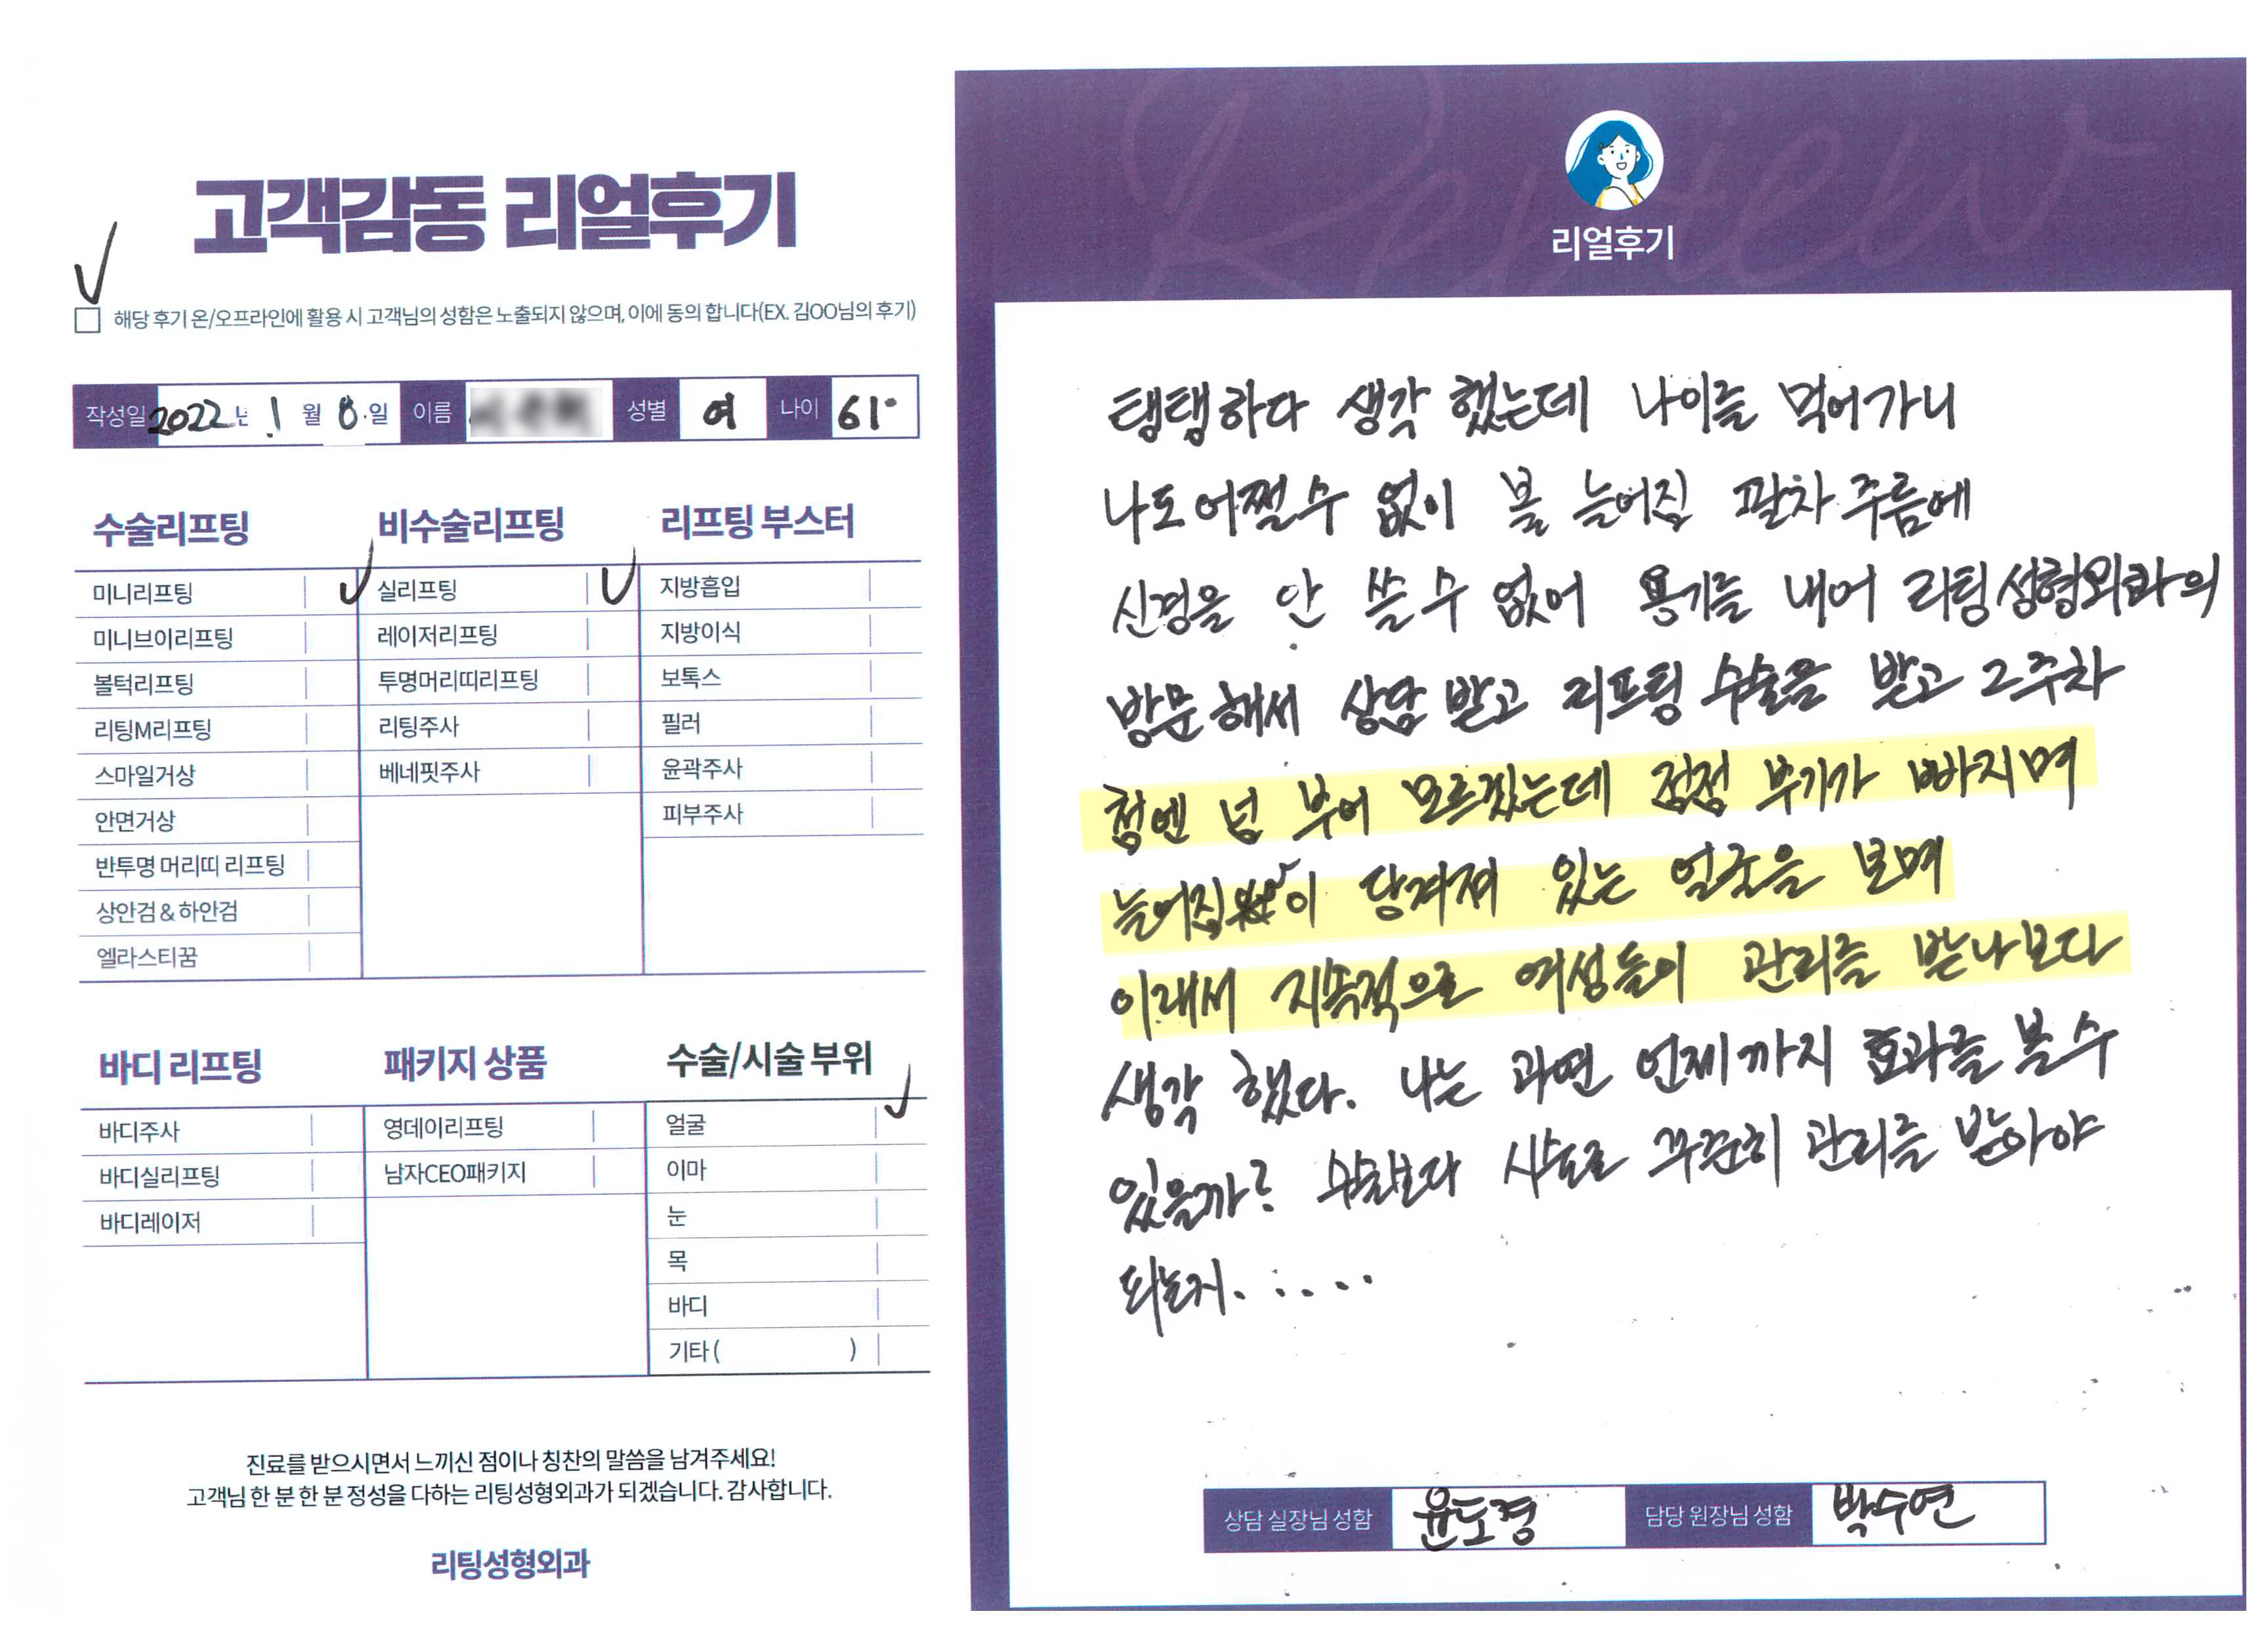 고객감동 리얼후기
해당 후기 온/오프라인에 활용 시 고객님의 성함은 노출되지 않으며, 이에 동의 합니다(EX. 김OO님의 후기)
작성일 2022년 1월 8일 이름 성별 여 나이 61
수술리프팅
미니리프팅
미니브이리프팅
볼턱리프팅
리팅M리프팅
스마일거상
안면거상
반투명 머리띠 리프팅
상안검 & 하안검
엘라스티꿈
비수술리프팅
실리프팅
레이저리프팅
투명머리띠리프팅
리팅주사
베네핏주사
리프팅 부스터
지방흡입
지방이식
보톡스
필러
윤곽주사
피부주사
바디 리프팅
바디주사
바디실리프팅
바디레이저
패키지 상품
영데이리프팅
남자CEO패키지
수술/시술 부위
얼굴
이마
눈
목
바디
기타 ( )
진료를 받으시면서 느끼신 점이나 칭찬의 말씀을 남겨주세요!
고객님 한 분 한 분 정성을 다하는 리팅성형외과가 되겠습니다. 감사합니다.
리팅성형외과
Review
리얼후기
탱탱하다 생각 했는데 나이를 먹어가니
나도 어쩔수 없이 볼 늘어짐 팔자 주름에
신경을 안 쓸 수 없어 용기를 내어 리팅성형외과의
방문해서 상담 받고 리프팅 수술을 받고 2주차
첨엔 넘 부어 모르겠는데 점점 부기가 빠지며
늘어짐이 당겨져 있는 얼굴을 보며
이래서 지속적으로 여성들이 관리를 받나보다
생각 했다. 나는 과연 언제까지 효과를 볼 수
있을까? 수술보다 시술로 꾸준히 관리를 받아야
되는지......
상담 실장님 성함 윤도경 담당 원장님 성함 박수연